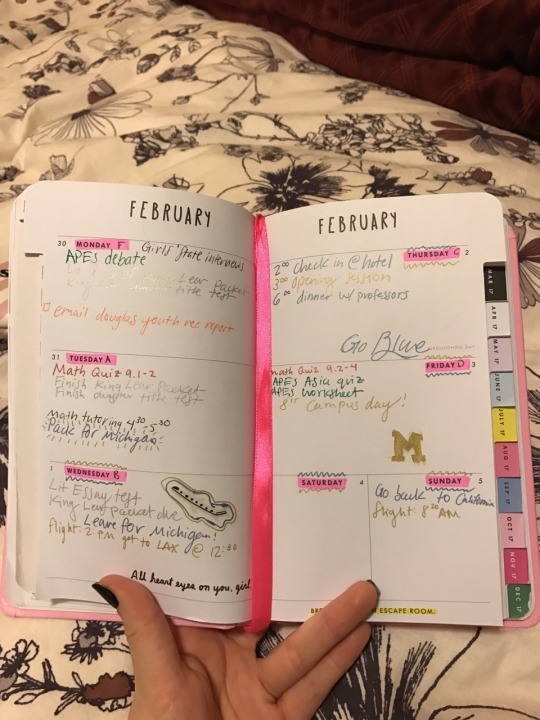 FEBRUARY
30 MONDAY F Girls' State interviews
APES debate
King Lear Packet
title test
email douglas youth rec report
31
TUESDAY A
Math Quiz 9.1-2
Finish King Lear Packet
Finish title test
Math tutoring 4:30-5:30
Pack for Michigan!
1 WEDNESDAY B
Lit Essay test
King Lear packet due
Leave for Michigan!
flight: 2 PM get to LAX @ 12:30
All heart eyes on you, girl
FEBRUARY
THURSDAY C 2
2:00 check in @ hotel
3:00 opening session
6:00 dinner w/ professors
Go Blue
GROUNDHOG DAY
FRIDAY D 3
math Quiz 9.2-4
APES Asia quiz
APES worksheet
8:00 Campus day!
M
SATURDAY 4
SUNDAY 5
Go back to California
flight: 8:20 AM
ESCAPE ROOM.
MAR 17
APR 17
MAY 17
JUNE 17
JULY 17
AUG 17
SEP 17
OCT 17
NOV 17
DEC 17